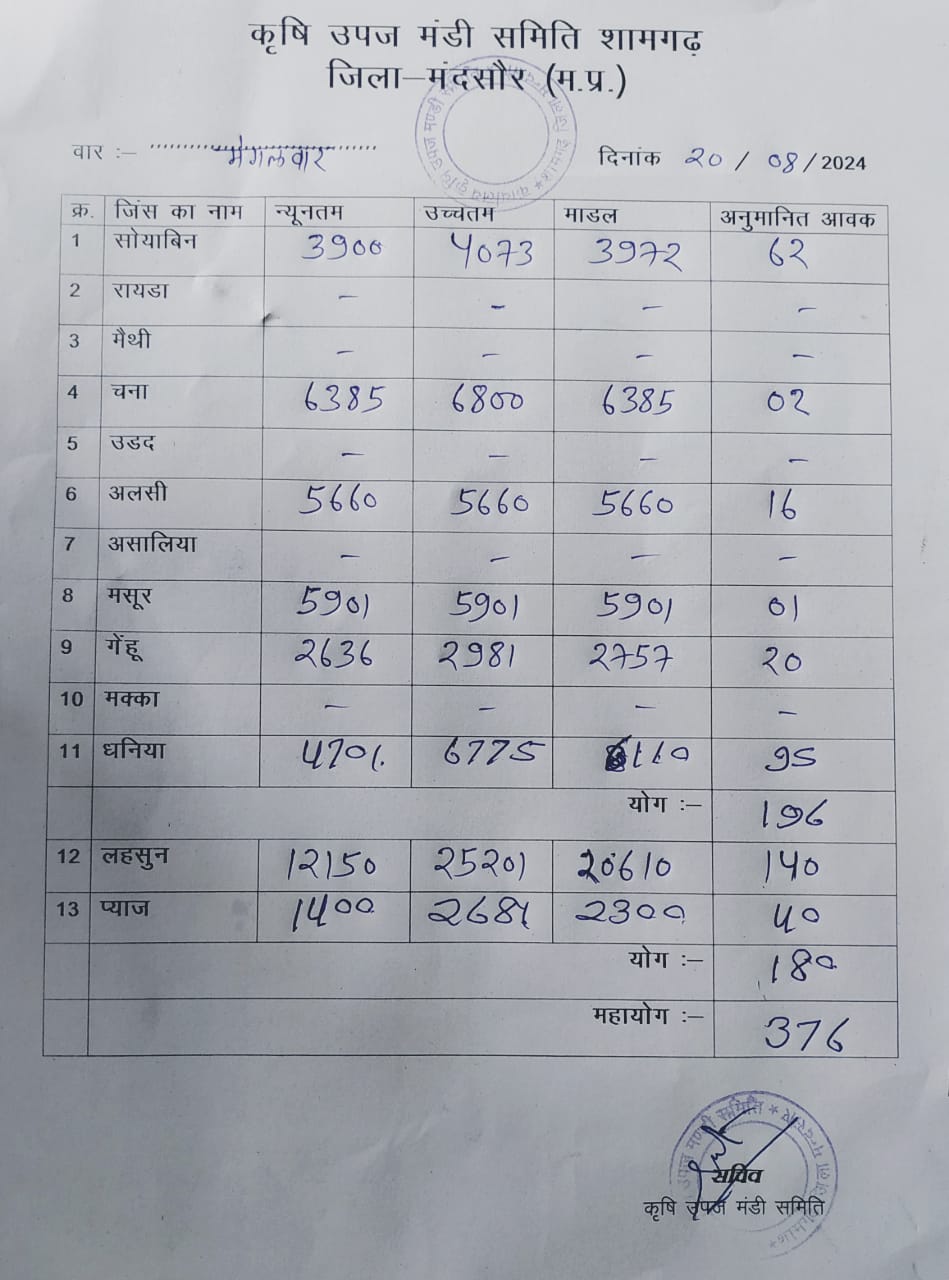 कृषि उपज मंडी समिति शामगढ़
जिला–मंदसौर (म.प्र.)
वार :– मंगलवार दिनांक 20 / 08 / 2024
क्र. जिंस का नाम न्यूनतम उच्चतम माडल अनुमानित आवक
1 सोयाबिन 3900 4073 3972 62
2 रायडा – – – –
3 मैथी – – – –
4 चना 6385 6800 6385 02
5 उडद – – – –
6 अलसी 5660 5660 5660 16
7 असालिया – – – –
8 मसूर 5901 5901 5901 01
9 गेंहू 2636 2981 2757 20
10 मक्का – – – –
11 धनिया 4701 6775 6160 95
योग :– 196
12 लहसुन 12150 25201 20610 140
13 प्याज 1400 2300 40
योग :– 180
महायोग :– 376
सचिव
कृषि उपज मंडी समिति